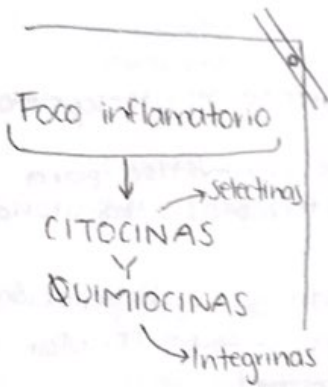 Foco inflamatorio
selectinas
CITOCINAS
Y
QUIMIOCINAS
Integrinas